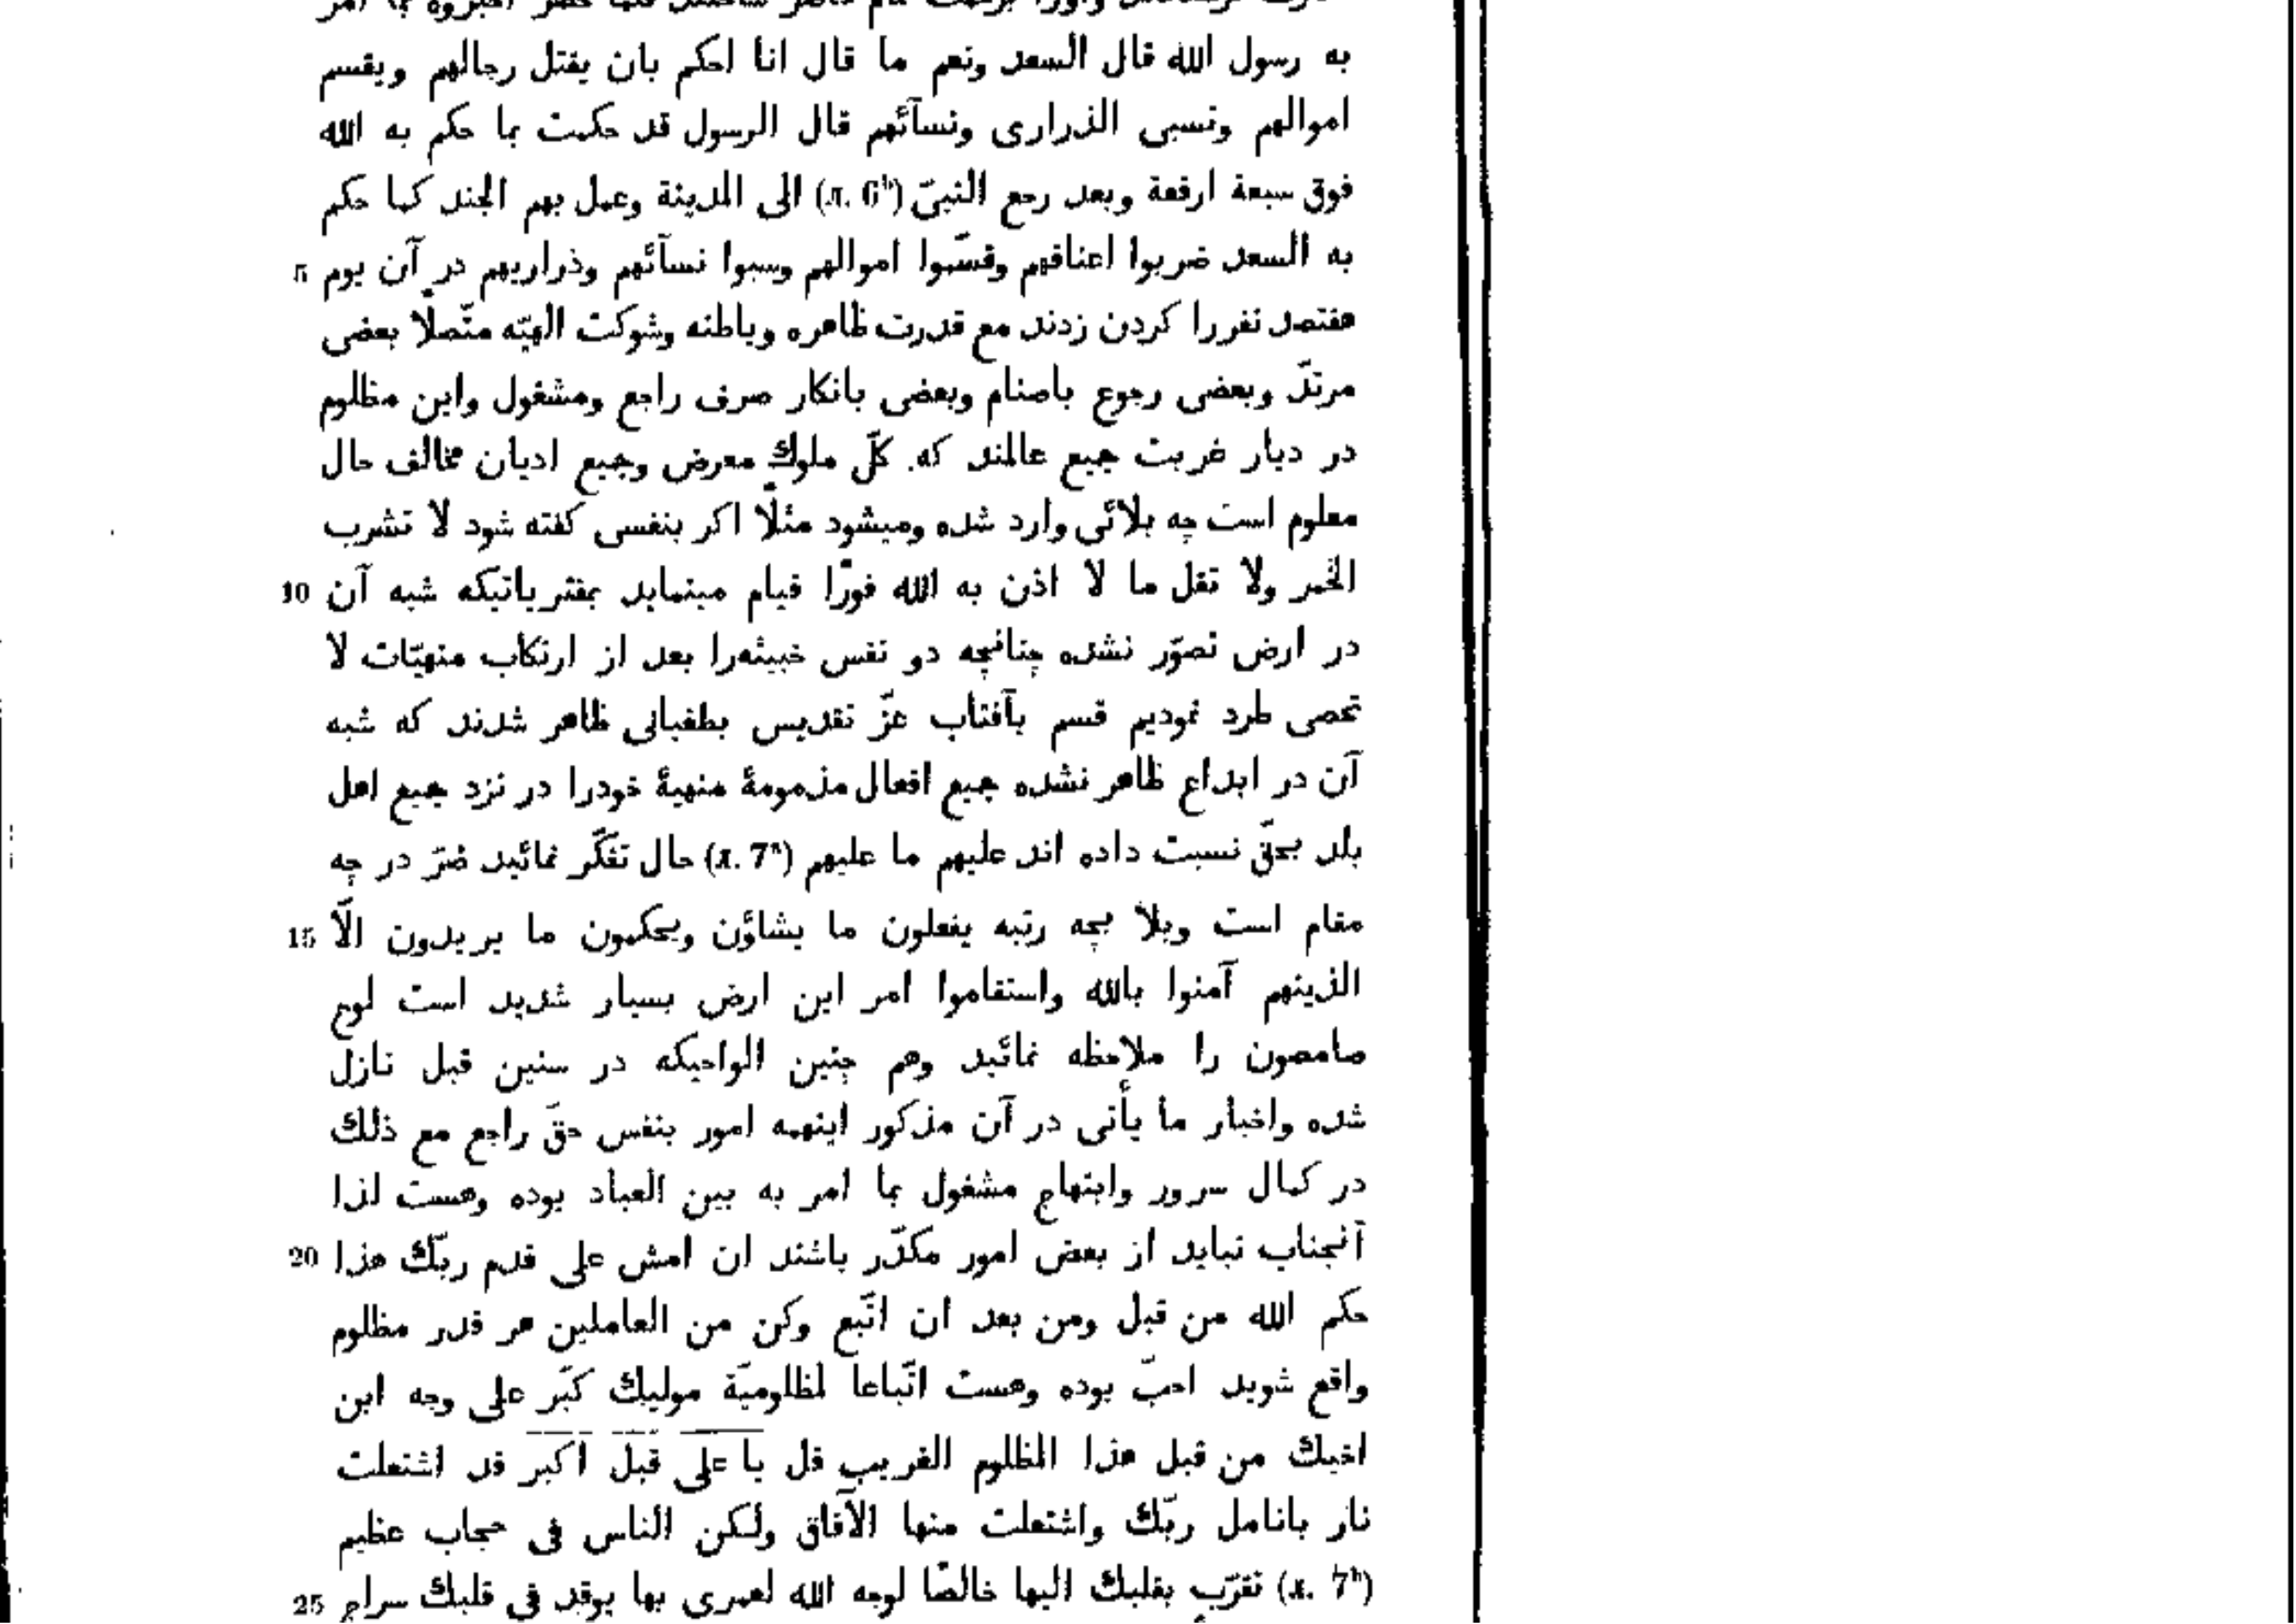 به رسول الله قال السعد ونعم ما قال انا احكم بان يقتل رجالهم ويقسم
اموالهم وتسبى الذرارى ونسآئهم قال الرسول قد حكمت بما حكم به الله
فوق سبعة ارقعة وبعد رجع النبىّ (л. 6ᵇ) الى المدينة وعمل بهم الجند كما حكم
به السعد ضربوا اعناقهم وقسّموا اموالهم وسبوا نسآئهم وذراريهم در آن يوم 5
هفتصد نفررا كردن زدند مع قدرت ظاهره وباطنه وشوكت الهيّه متّصلًا بعضى
مرتدّ وبعضى رجوع باصنام وبعضى بانكار صرف راجع ومشغول واين مظلوم
در ديار غربت جميع عالمند كه. كلّ ملوك معرض وجميع اديان مخالف حال
معلوم است چه بلائى وارد شده وميشود مثلًا اكر بنفسى كفته شود لا تشرب
الخمر ولا تقل ما لا اذن به الله فورًا قيام مينمايد بمفترياتيكه شبه آن 10
در ارض تصوّر نشده چنانچه دو نفس خبيثه‌را بعد از ارتكاب منهيّات لا
تحصى طرد نموديم قسم بآفتاب عزّ تقديس بطغيانى ظاهر شدند كه شبه
آن در ابداع ظاهر نشده جميع افعال مذمومهٔ منهيهٔ خودرا در نزد جميع اهل
بلد بحقّ نسبت داده اند عليهم ما عليهم (л. 7ᵃ) حال تفكّر نمائيد ضرّ در چه
مقام است وبلا بچه رتبه يفعلون ما يشاؤن ويحكمون ما يريدون الّا 15
الذينهم آمنوا بالله واستقاموا امر اين ارض بسيار شديد است لوح
صامصون را ملاحظه نمائيد وهم چنين الواحيكه در سنين قبل نازل
شده واخبار ما يأتى در آن مذكور اينهمه امور بنفس حقّ راجع مع ذلك
در كمال سرور وابتهاج مشغول بما امر به بين العباد بوده وهست لذا
آنجناب نبايد از بعض امور مكدّر باشند ان امش على قدم ربّك هذا 20
حكم الله من قبل ومن بعد ان اتّبع وكن من العاملين هر قدر مظلوم
واقع شويد احبّ بوده وهست اتّباعا لمظلوميّة موليك كبّر على وجه ابن
اخيك من قبل هذا المظلوم الغريب قل يا على قبل اكبر قد اشتعلت
نار بانامل ربّك واشتعلت منها الآفاق ولكن الناس فى حجاب عظيم
(л. 7ᵇ) تقرّب بقلبك اليها خالصًا لوجه الله لعمرى بها يوقد فى قلبك سراج 25